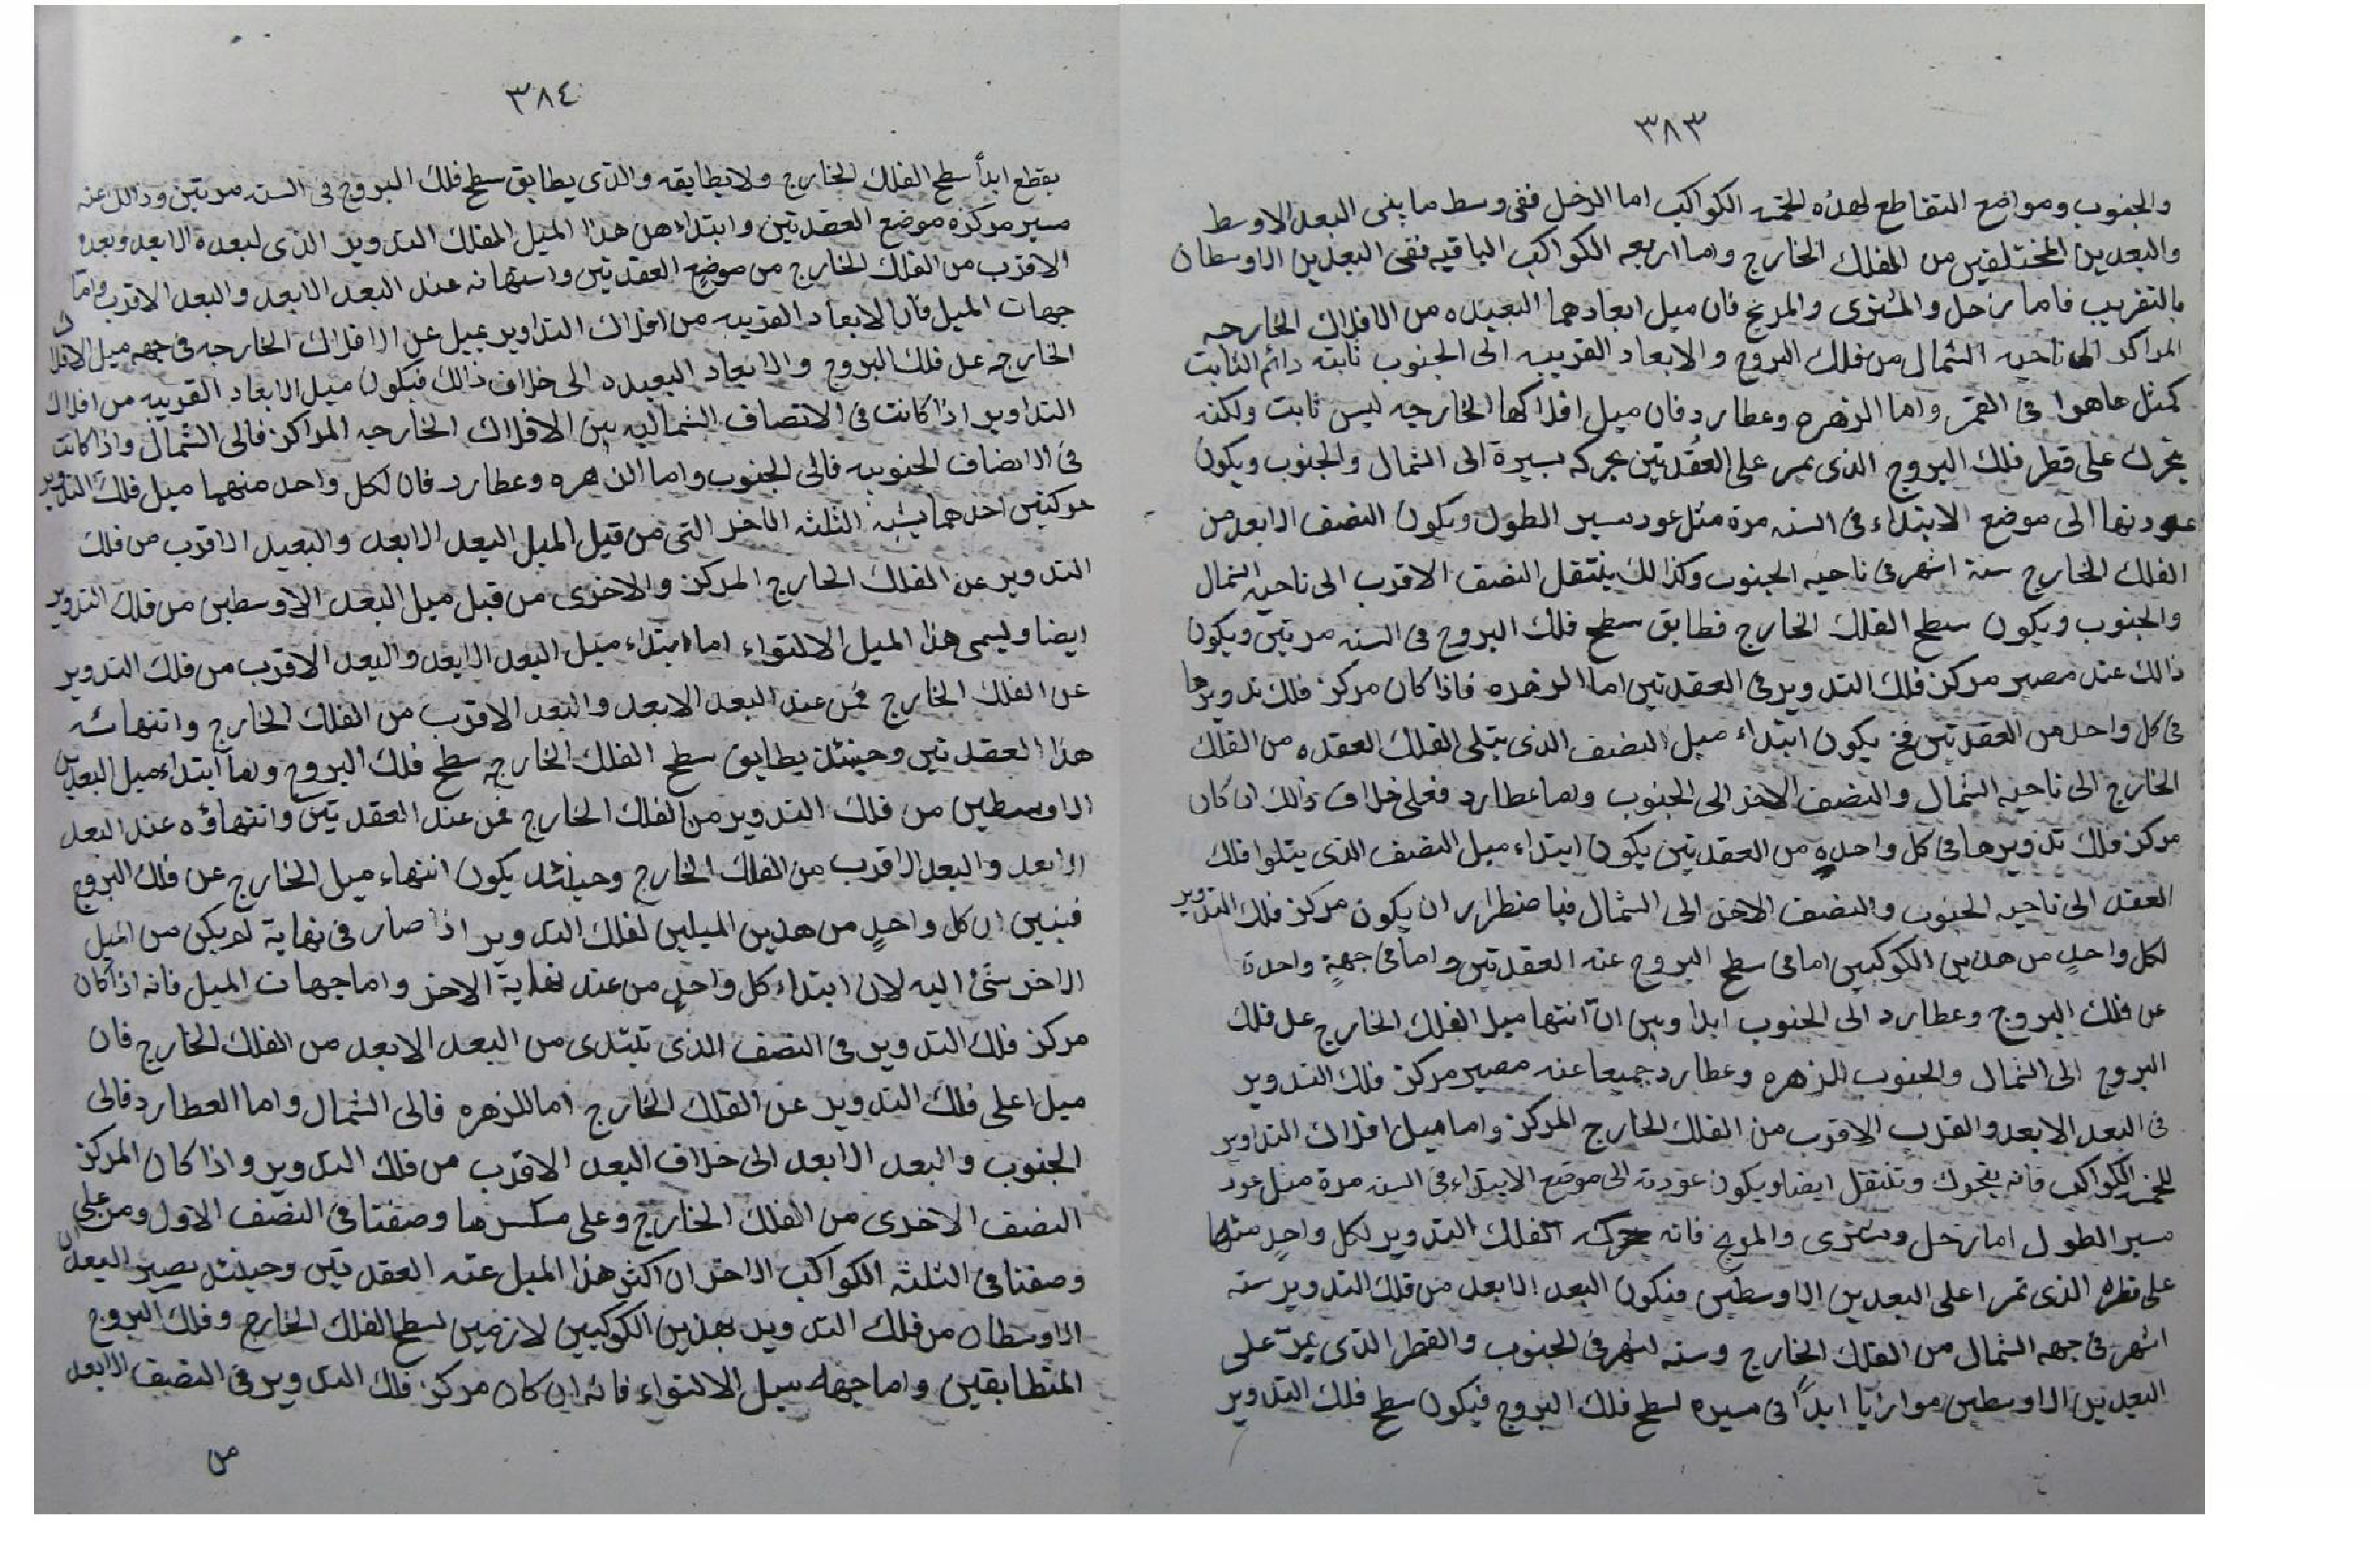 ٣٨٣
والجنوب ومواضع التقاطع لهذه الخمسه الكواكب اما الزحل ففى وسط ما بنى البعد الاوسط
والبعدين المختلفين من الفلك الخارج واما اربعه الكواكب الباقيه ففى البعدين الاوسطان
بالتقريب فاما زحل والمشترى والمريخ فان ميل ابعادهما البعيده من الافلاك الخارجه
المراكز الى ناحيه الشمال من فلك البروج والابعاد القريبه الى الجنوب ثابته دائم الثابت
كمثل ماهوا فى القمر واما الزهره وعطارد فان ميل افلاكها الخارجه ليس ثابت ولكنه
يتحرك على قطر فلك البروج الذى يمر على العقدتين بحركه يسيرة الى الشمال والجنوب ويكون
عودتها الى موضع الابتداء فى السنه مرة مثل عود سير الطول ويكون النصف الابعد من
الفلك الخارج ستة اشهر فى ناحيه الجنوب وكذالك ينتقل النصف الاقرب الى ناحيه الشمال
والجنوب ويكون سطح الفلك الخارج فطابق سطح فلك البروج فى السنه مرتين ويكون
ذالك عند مصير مركز فلك التدوير فى العقدتين اما الزهره فاذا كان مركز فلك تدويرها
فى كل واحد من العقدتين فح يكون ابتداء ميل النصف الذى يتلى الفلك العقده من الفلك
الخارج الى ناحيه الشمال والنصف الاخر الى الجنوب واما عطارد فعلى خلاف ذالك ان كان
مركز فلك تدويرها فى كل واحده من العقدتين يكون ابتداء ميل النصف الذى يتلوا فلك
العقد الى ناحيه الجنوب والنصف الاخر الى الشمال فباضطرار ان يكون مركز فلك التدوير
لكل واحدٍ من هدين الكوكبين اما فى سطح البروج عند العقدتين واما فى جهةٍ واحدة
عن فلك البروج وعطارد الى الجنوب ابدا وبين انّ انتها ميل الفلك الخارج عل فلك
البروج الى الشمال والجنوب الزهره وعطارد جميعا عند مصير مركز فلك التدوير
فى البعد الابعد والقرب الاقرب من الفلك الخارج المركز واما ميل افلاك التداوير
للخمسه الكواكب فانه يتحرك وتنتقل ايضا ويكون عودته الى موضع الابتداء فى السنه مرة مثل عود
سير الطول اما زحل ومشترى والمريخ فانه حركه الفلك التدوير لكل واحدٍ منها
على قطره الذى تمرا على البعدين الاوسطين فيكون البعد الابعد من فلك التدوير سته
اشهر فى جهه الشمال من الفلك الخارج وسته اشهر فى الجنوب والقطر الذى يمرّ على
البعدين الاوسطين موازيا ابدًا فى مسيره لسطح فلك البروج فيكون سطح فلك التدوير
٣٨٤
يقطع ابدأ سطح الفلك الخارج ولا يطابقه والذى يطابق سطح فلك البروج فى السنه مرتين وذالك عند
مسير مركزه موضع العقدتين وابتداء هذا الميل الفلك التدوير الذى لبعده الابعد وبعده
الاقرب من الفلك الخارج من موضع العقدتين وانتهائه عند البعد الابعد والبعد الاقرب وامّا
جهات الميل فان الابعاد القريبه من افلاك التداوير يميل عن الافلاك الخارجه فى جهه ميل الافلاك
الخارجه عل فلك البروج والابعاد البعيده الى خلاف ذالك فيكون ميل الابعاد القريبه من افلاك
التداوير اذا كانت فى الانصاف الشماليه من الافلاك الخارجه المراكز فالى الشمال واذا كانت
فى الانصاف الجنوبيه فالى الجنوب واما الزهره وعطارد فان لكل واحد منهما ميل فلك التدوير
حركتين احدهما يشبه الثلثه الاخر التى من قبل الميل البعد الابعد والبعيد الاقرب من فلك
التدوير عن الفلك الخارج المركز والاخرى من قبل ميل البعد الاوسطين من فلك التدوير
ايضا ويسمى هذا الميل الالتواء اما ابتداء ميل البعد الابعد والبعد الاقرب من فلك التدوير
عن الفلك الخارج فمن عند البعد الابعد والبعد الاقرب من الفلك الخارج وانتهائه
هذا العقدتين وحينئذ يطابق سطح الفلك الخارجه سطح فلك البروج واما ابتداء ميل البعدين
الاوسطين من فلك التدوير من الفلك الخارج فمن عند العقدتين وانتهاؤه عند البعد
الابعد والبعد الاقرب من الفلك الخارج وحينئذ يكون انتهاء ميل الخارج عن فلك البروج
فيتبين ان كل واحدٍ من هدين الميلين لفلك التدوير اذا صار فى نهاية لم يكن من الميل
الاخر شئ اليه لان ابتداء كل واحدٍ من عند نهاية الاخر واما جهات الميل فانه اذا كان
مركز فلك التدوير فى النصف الذى تبتدى من البعد الابعد من الفلك الخارج فان
ميل اعلى فلك التدوير عن الفلك الخارج اما للزهره فالى الشمال واما العطارد فالى
الجنوب والبعد الابعد الى خلاف البعد الاقرب من فلك التدوير واذا كان المركز
النصف الاخرى من الفلك الخارج وعلى وصفنا فى النصف الاول ومن على
وصفنا فى الثلثه الكواكب الاخر ان اكثر هذا الميل عند العقدتين وحينئذ يصير البعدان
الاوسطان من فلك التدوير بهذين الكوكبين لازمين لسطح الفلك الخارج وفلك البروج
المتطابقين واما جهه ميل الالتواء فانه ان كان مركز فلك التدوير فى النصف الابعد
من